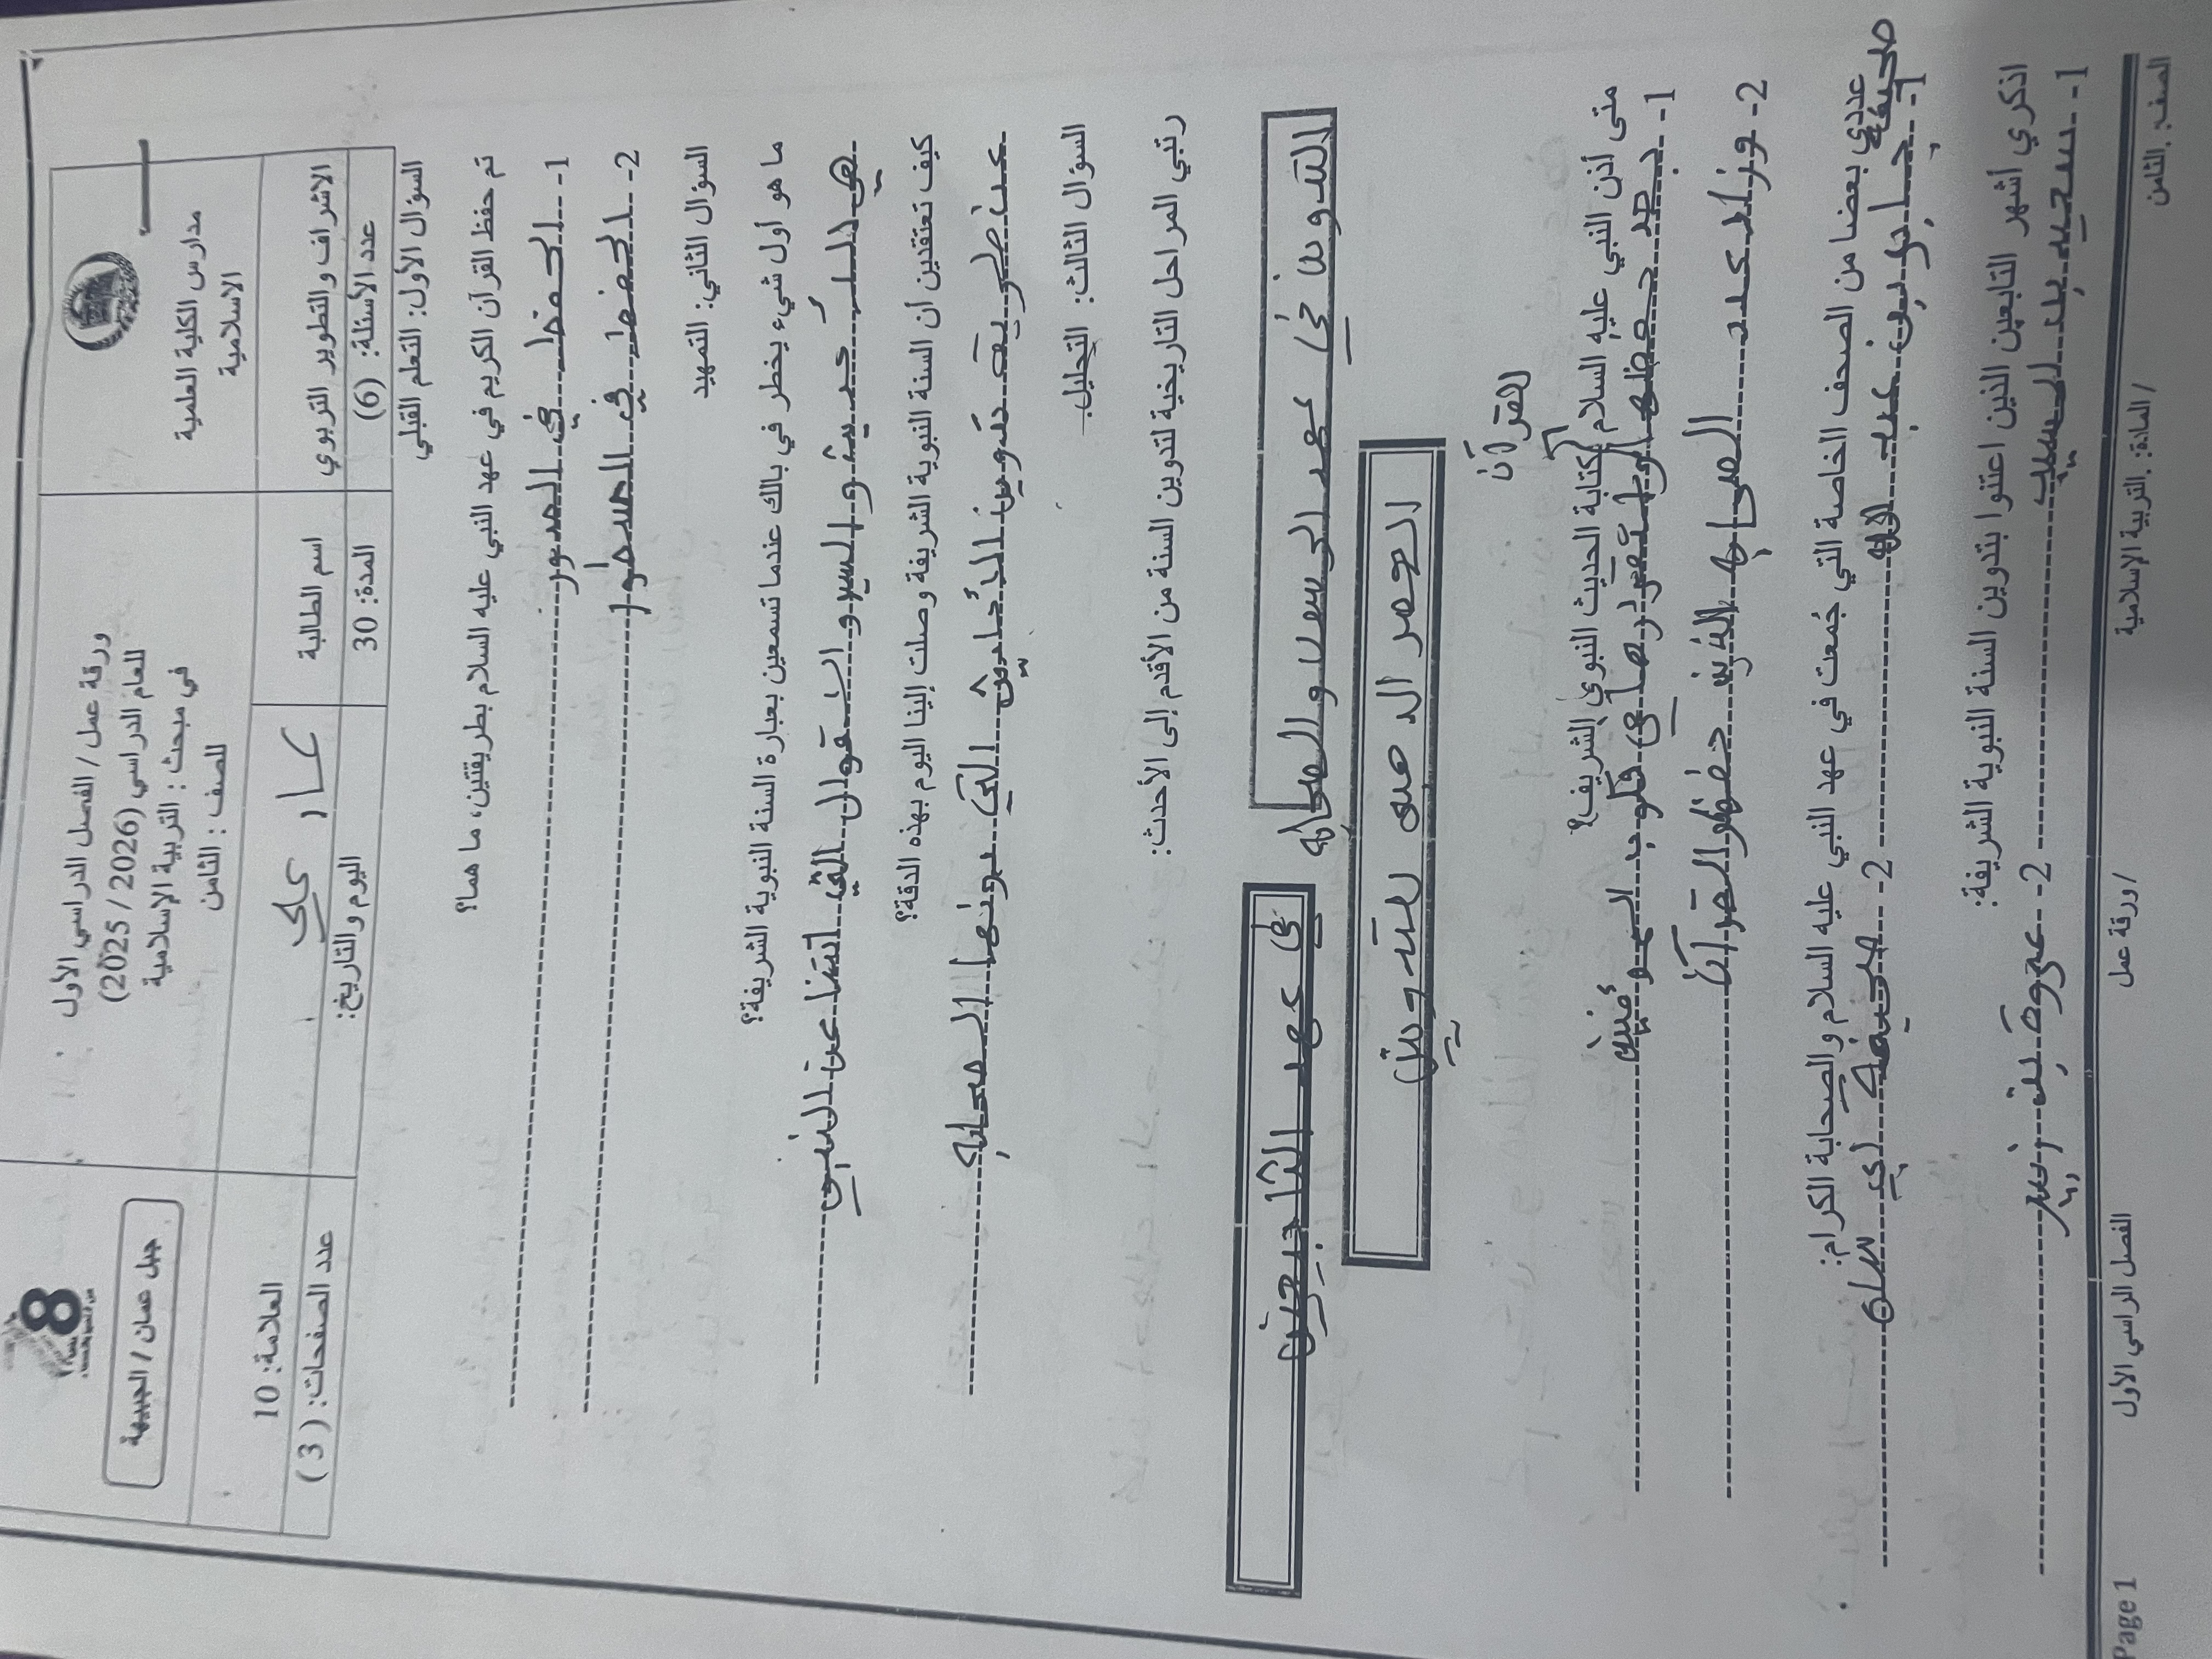 مدارس الكلية العلمية
الاسلامية
ورقة عمل / الفصل الدراسي الأول
للعام الدراسي (2026 / 2025)
في مبحث : التربية الإسلامية
للصف : الثامن
8
جبل عمان / الجبيهة
الاشراف والتطوير التربوي
اسم الطالبة
العلامة: 10
عدد الأسئلة: (6)
المدة: 30
اليوم والتاريخ:
عدد الصفحات: ( 3 )
السؤال الأول: التعلم القبلي
تم حفظ القرآن الكريم في عهد النبي عليه السلام بطريقتين، ما هما؟
1- الحفظ في الصدور
2- الحفظ في السطور
السؤال الثاني: التمهيد
ما هو أول شيء يخطر في بالك عندما تسمعين بعبارة السنة النبوية الشريفة؟
التي اتتنا عن النبي
كيف تعتقدين أن السنة النبوية الشريفة وصلت إلينا اليوم بهذه الدقة؟
عن طريق تدوين الأحاديث التي الصحابة
السؤال الثالث: التحليل
رتبي المراحل التاريخية لتدوين السنة من الأقدم إلى الأحدث:
التدوين في عهد الرسول والصحابة
في عهد التابعين
العصر الذهبي للتدوين
القرآن
متى أذن النبي عليه السلام كتابة الحديث النبوي الشريف؟
1- بعد
2- وزاد عدد الصحابة الذين حفظوا القرآن
عددي بعضا من الصحف الخاصة التي جُمعت في عهد النبي عليه السلام والصحابة الكرام:
صحيفة
1- جابر بن عبد الله
2- صحيفة
اذكري أشهر التابعين الذين اعتنوا بتدوين السنة النبوية الشريفة:
1- سعيد بن المسيب
2- عروة بن زبير
الصف: الثامن
/ المادة: التربية الإسلامية
/ ورقة عمل
الفصل الراسي الأول
Page 1